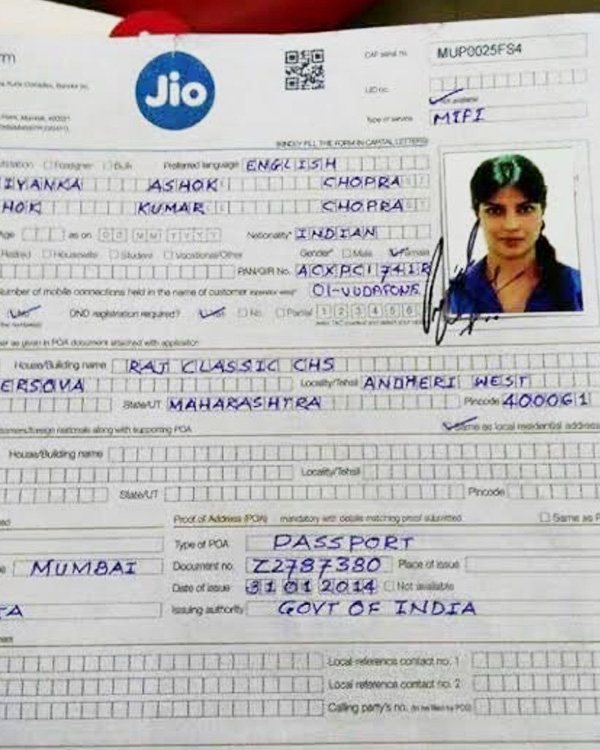 rm
Jio
CAF serial no. MUP0025FS4
UID no.
Not available
Type of service MIFI
(KINDLY FILL THE FORM IN CAPITAL LETTERS)
Foreigner Bulk Preferred language ENGLISH
IYANKA ASHOK CHOPRA
HOK KUMAR CHOPRA
Age as on DD MM YYYY Nationality* INDIAN
Retired Housewife Student Vocational/Other Gender* Male Female
PAN/GIR No. ACXPC1741R
Number of mobile connections held in the name of customer 01-VODAFONE
DND registration required? Yes No Partial 1 2 3 4 5 6
er as given in POA document attached with application
House/Building name RAJ CLASSIC CHS
ERSOVA Locality/Tehsil ANDHERI WEST
State/UT MAHARASHTRA Pincode 400061
stomers/foreign nationals along with supporting POA Same as local residential address
House/Building name
Locality/Tehsil
State/UT Pincode
Proof of Address (POA) mandatory with details matching proof submitted Same as P
Type of POA PASSPORT
MUMBAI Document no. Z2787380 Place of issue
Date of issue 31 01 2014 Not available
TA Issuing authority GOVT OF INDIA
Local reference contact no. 1
Local reference contact no. 2
Calling party's no.